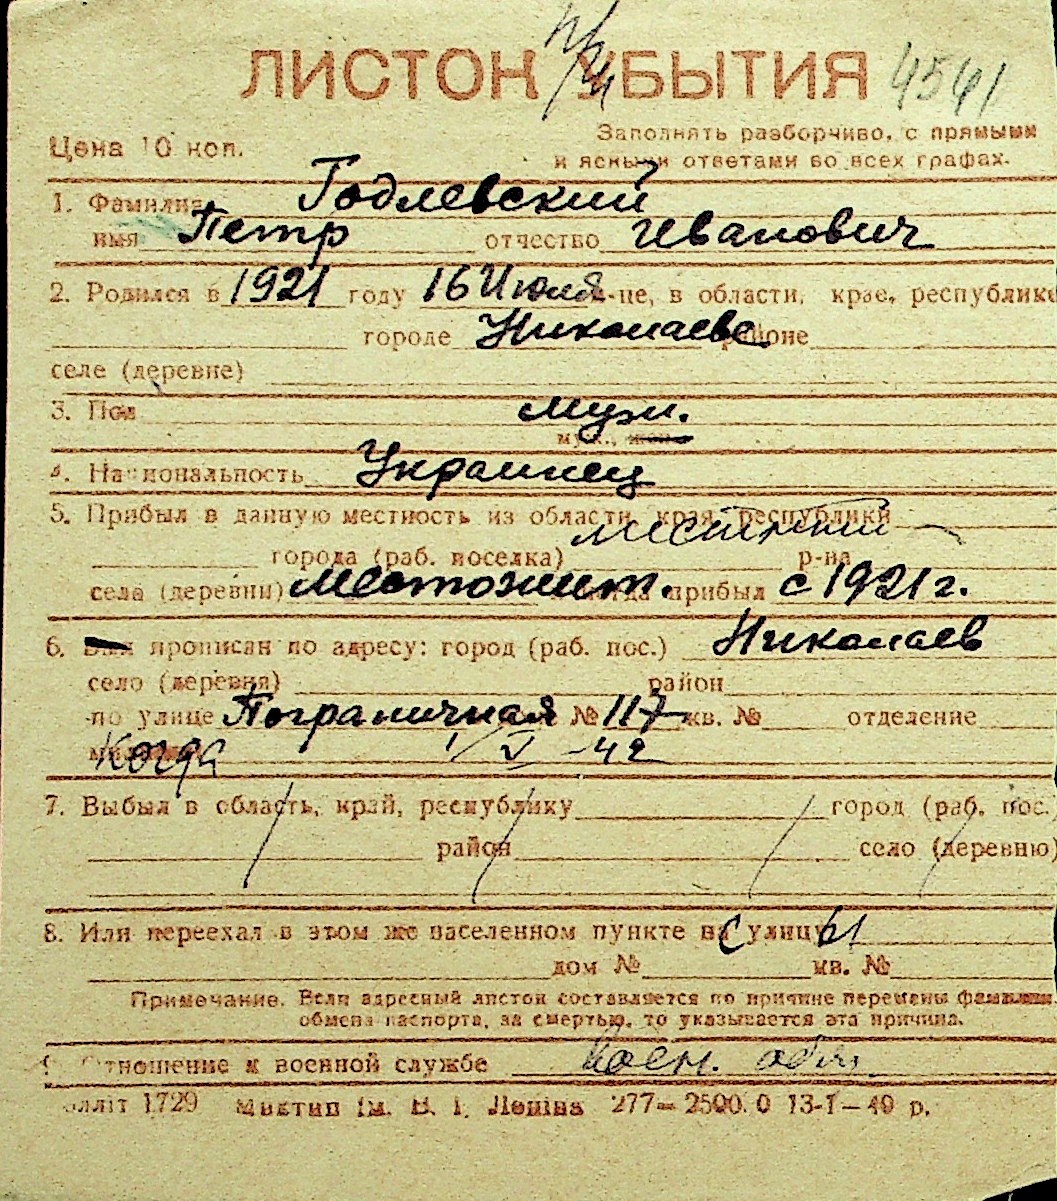 ЛИСТОК УБЫТИЯ 4541
Цена 10 коп.
Заполнять разборчиво, с прямыми
и ясными ответами во всех графах.
1. Фамилия Годлевский
имя Петр отчество Иванович
2. Родился в 1921 году 16 Июля м-це, в области, крае, республике
городе Николаеве районе
селе (деревне)
3. Пол муж.
муж., жен.
4. Национальность Украинец
5. Прибыл в данную местность из области, края, республики местный
города (раб. поселка) р-на
села (деревни) местожит. прибыл с 1921 г.
6. прописан по адресу: город (раб. пос.) Николаев
село (деревня) район
по улице Пограничная № 117 кв. № отделение
Когда 1/V-42
7. Выбыл в область, край, республику город (раб. пос.)
район село (деревню)
8. Или переехал в этом же населенном пункте на улицу
дом № кв. №
Примечание. Если адресный листок составляется по причине перемены фамилии,
обмена паспорта, за смертью, то указывается эта причина.
9. Отношение к военной службе Воен. обяз.
1729 Миктип ім. В. І. Леніна 277—2500.0 13-I—40 р.